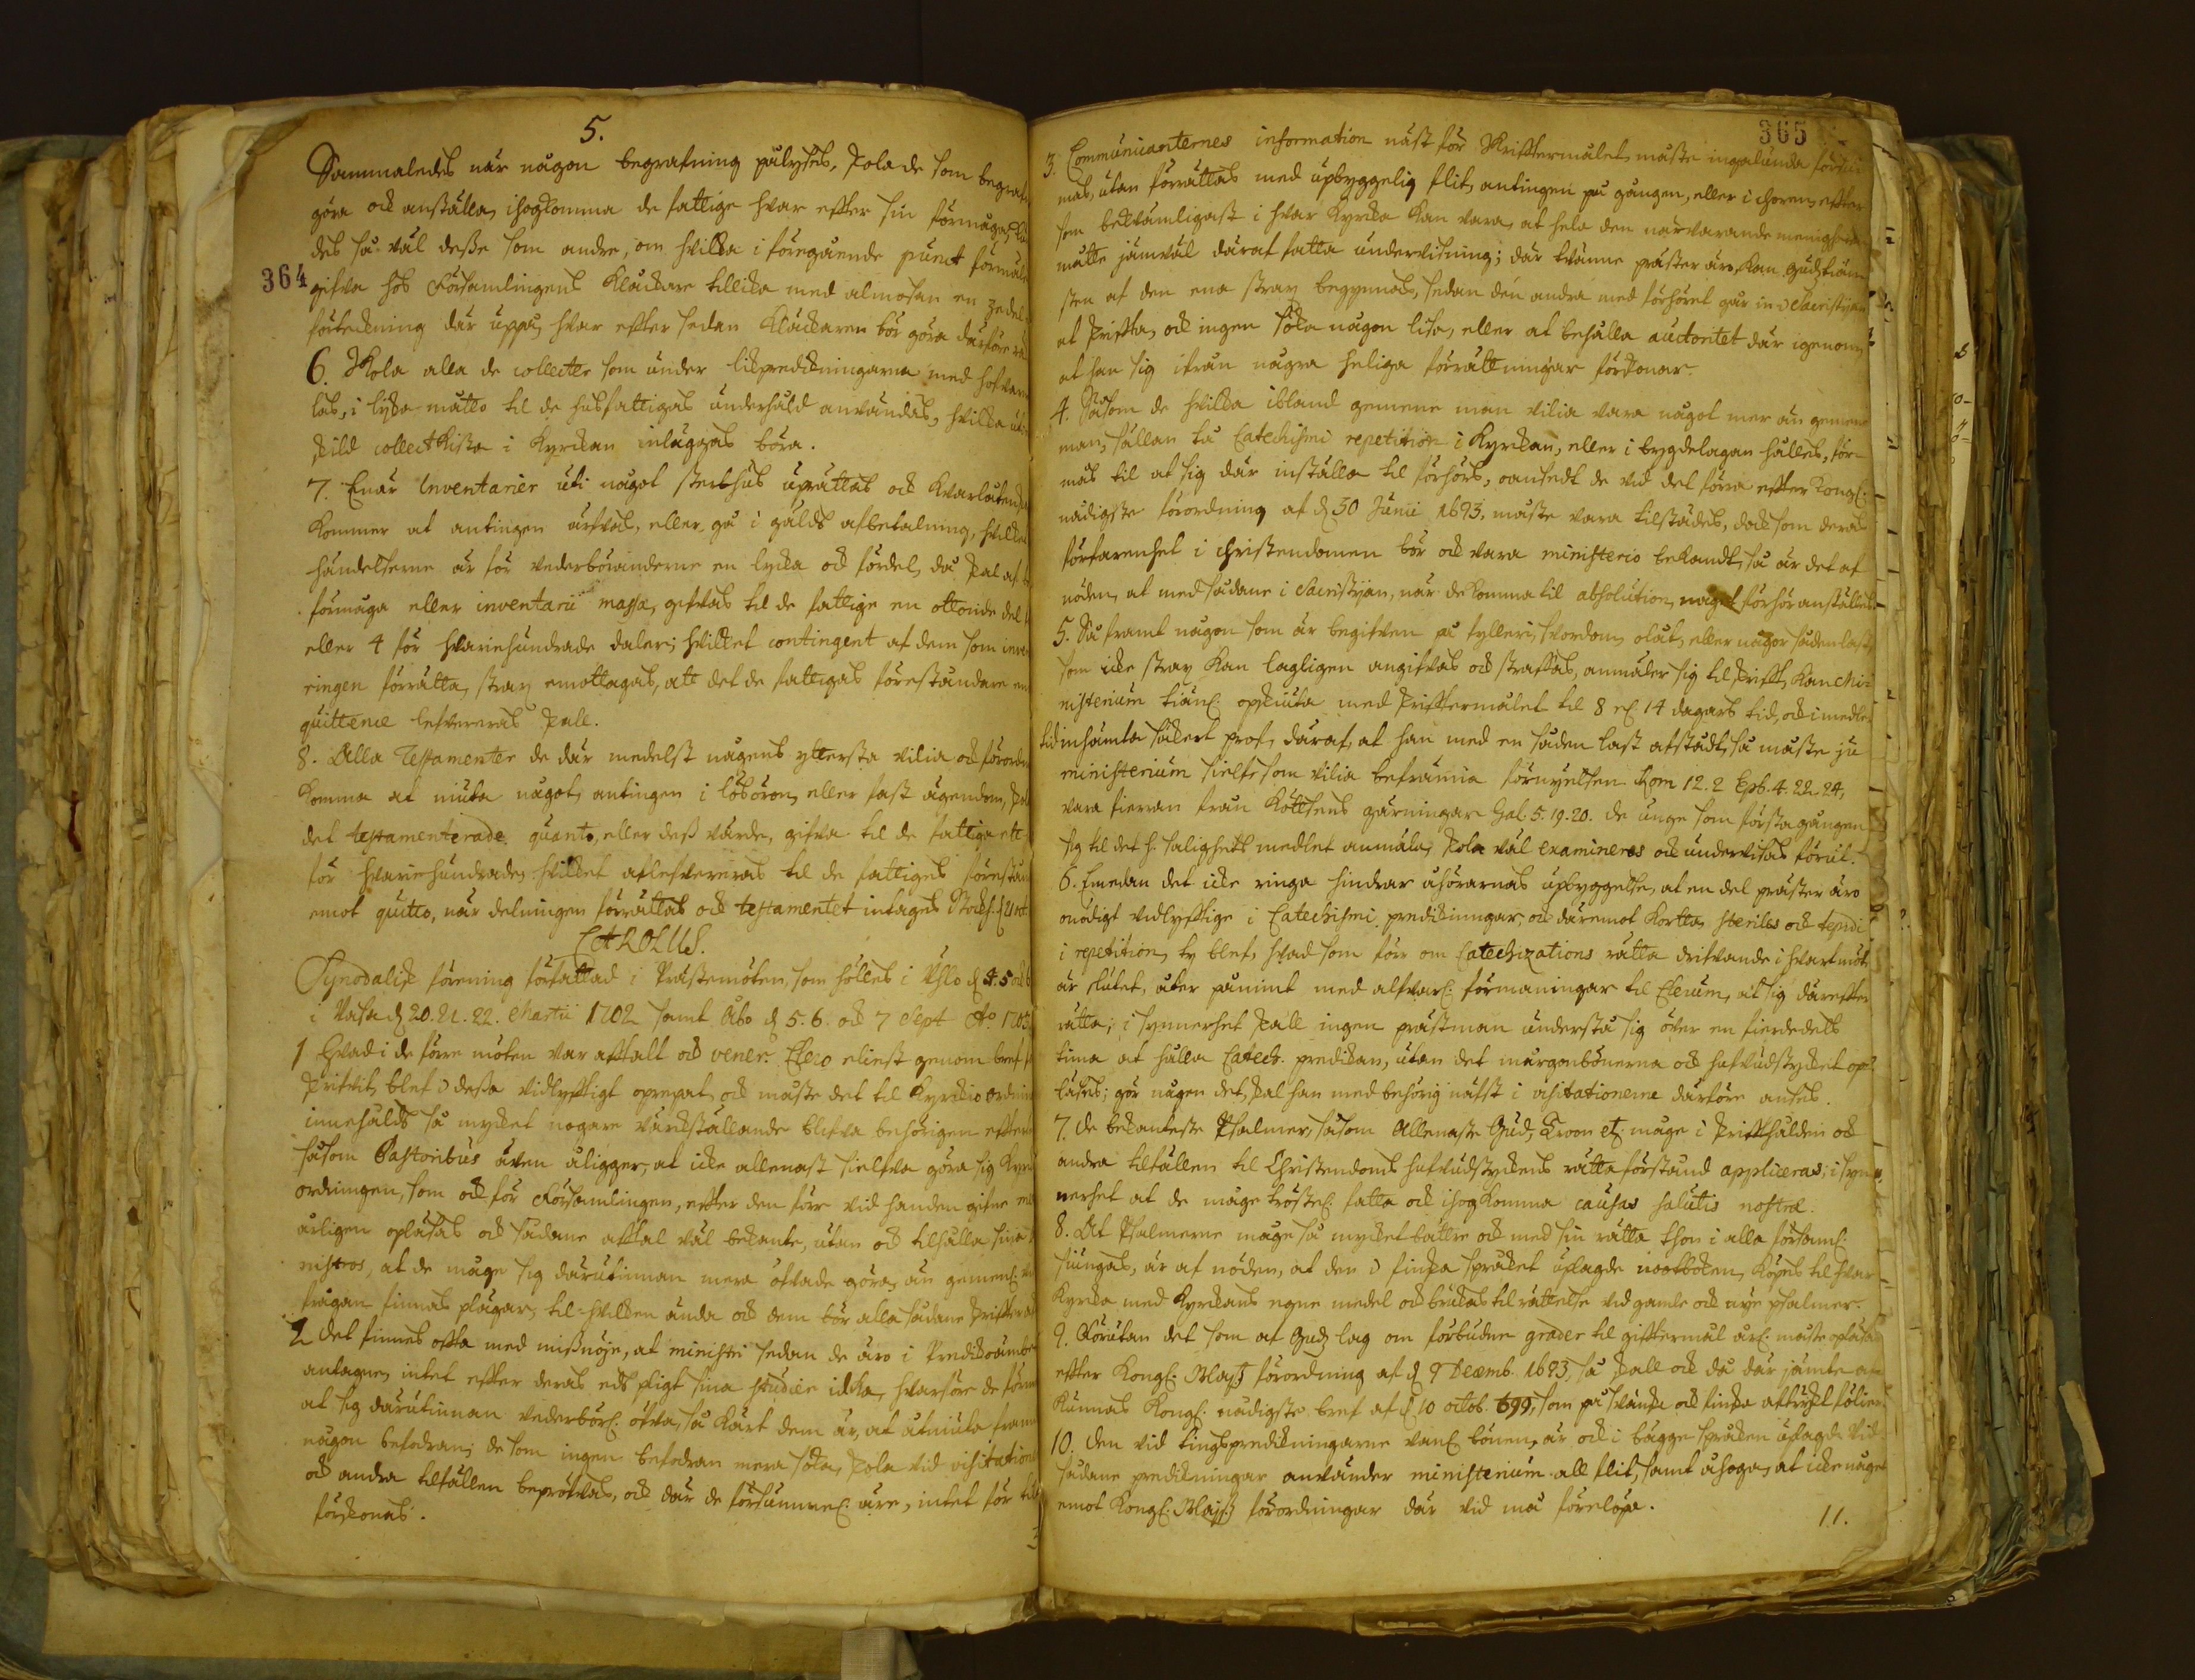 5.
Sammaledes när någon begrafning pålyses, skola de som begraf
göra och anställa, ihogkomma de fattige hvar efter sin förmåga,
des så väl desse som andre, om hvilka i föregående punct förmäles
364
gifva hos Församlingens Klåckare tillika med almosan en zedel
förtekning där uppå, hvar efter sedan Klåckaren bör göra därföre
6. Skola alla de collecter som under likpredikningarna med hofvar
las, i lijka måtto til de husfattigas underhåld användas, hvilka uti
skild collect Kista i Kyrckan inläggas böra.
7. Enär Inventarier uti något sterbhus uprättas och Kvarlåtens
Kommer at antingen ärfvas, eller gå i gälds afbetalning, hvilka
händelserne är för vederböranderne en lycka och fördel, då skal af
förmåga eller inventarii massa, gifvas til de fattige en ottonde del
eller 4 för hvariehundrade daler; hvilket contingent af dem som inve
ringen förrätta, strax emottagas, att det de fattigas föreståndare
quittence lefvereras skall.
8. Alla Testamenter de där medelst någens ytterste vilia och förord
Komma at niuta något, antingen i lösören, eller fast ägendom, skola
det testamenterade quanto, eller dess värde, gifva til de fattiga ett
för hvarie hundrade, hvilket aflefvereras til de fattiges förestån
emot quitto, när delningen förrättas och testamentet intages Stockh.
CAROLUS.
Synodalisk förening författad i Prästemöten, som hölles i Uhlo d. 4. 5 och 6
i Vasa d 20. 21. 22. Martii 1702 samt Åbo d 5. 6. och 7 Sept Ao 1703
1 Hvad i de förre möten var afftalt och vener. Clero eliest genom bref
skrifvit, blef i dessa vidlyfftigt oprepat, och måste det til Kyrckio ordnin
innehålds så myckit nogare värckställande blifva behörigen efter
såsom Pastoribus även åligger, at icke allenast sielfva göra sig Kyrc
ordningen, som och för Församlingen, efter den förr vid handen gifne
årligen opläsas och sådane afftal väl bekante, utan och tilhålla sina
nistros, at de måge sig därutinnan mera öfvade göra, än gemenl.
frågan finnas plägar, til hvilken ända och dem bör alla sådane skrifter
2 Det finnes offta med missnöje, at ministri sedan de äro i Predikoämbe
antagne, intet efter deras eds pligt sina studier idka, hvarföre de förma
at sig därutinnan vederbörl. öfva, så kärt dem är, at åtniuta fram
någon befodran; de som ingen befodran mera söka, skola vid visitation
och andra tilfällen bepröfvas, och där de försummel. äre, intet för
förskonas.
365
3. Communicanternes information näst för Skrifftermålet måste ingalunda försum
mas, utan förrättas med upbyggelig flit, antingen på gången, eller i choren, effter
som bekvämligast i hvar Kyrcka Kan vara, at hela den närvarande menigheten
måtte jämväl däraf fatta undervisning; där tvänne präster äro, kan gudstiän
sten af den ena strax begynnas, sedan den andra med förhöret går in i Sacristijan
at skrifta, och ingen söka någon lisa, eller at behålla auctoritet där igenom,
at han sig ifrån några heliga förrättningar förskonar.
4. Såsom de hvilka ibland gemene man vilia vara något mer än gemene
man, sällan då Catechismi repetition i Kyrckan, eller i bygdelagen hålles, för-
mås til at sig där inställa til förhörs, oansedt de vid det förra effter Kongl.
nådigste förordning af d 30 Junii 1693, måste vara tilstädes, dock som deras
förfarenhet i christendomen bör och vara ministerio bekandt, så är det af
nöden, at med sådane i Sacristijan, när de komma til absolution, någet förhör anställes
5. Så framt någon som är begifven på fylleri, svordom, olåt, eller någor sådan last,
som icke strax kan lagligen angifvas och straffas, anmäler sig til skrifft, Kan Mi-
nisterium tiänl. opskiuta med skrifftermålet til 8 el. 14 dagars tid, och i medler
tid inhämta säkert prof, däraf, at han med en sådan last afstådt, så måste ju
ministerium sielfv som vilia befrämia förnyelsen Rom 12. 2 Eph. 4. 22. 24,
vara fierran från Köttsens gärningar Gal. 5. 19. 20. de unge som förstagången
sig til det h. salighets medlet anmäla, skola väl examineras och undervisas förut.
6. Emedan det icke ringa hindrar åhörarnas upbyggelse, at en del präster äro
onödigt vidlyfftige i Catechismi predikningar, och däremot korta, steriles och tepidi
i repetition, ty blef, hvad som förr om Catechizations rätta drifvande i hvart möte
är slutet, åter påmint med alfvarl. förmaningar til Clerum, at sig däreffter
rätta; i synnerhet skall ingen prästman understå sig öfver en fierdedels
tima at hålla Catech. predikan, utan det morgonbönerna och hufvudstycket op-
läses; gör någen det, skal han med behörig näfst i visitationerne därföre anses.
7. De bekanteste Psalmer, såsom Allenaste Gud, Troon etc. måge i skriffthålden och
andra tilfällen til Christendoms hufvudstyckens rätta förstånd appliceras; i syn-
nerhet at de måge tröstel. fatta och ihogkomma causas salutis nostræ.
8. At Psalmerne måge så mycket bättre och med sin rätta thon i alla församl.
siungas, är af nöden, at den i finska språket uplagde nootboken, köpes til hvar
Kyrcka med Kyrckans egne medel och brukas til rättelse vid gamle och nye psalmer.
9. Förutan det som af Gudz lag om förbudne grader til gifftermål årl. måste opläsas
effter Kongl. Majtz förordning af d 9 Decemb. 1693, så skall och då där jämte af-
kunnas Kongl. nådigste bref af d 10 octob. 699, som på svänska och finska aftryckt följer
10. Den vid tingspredikningarne vanl. bönen, är och i bägge språken uplagd. Vid
sådane predikningar använder ministerium all flit, samt åhoga, at icke någet
emot Kongl. Majtz förordningar där vid må förelöpa.
11.